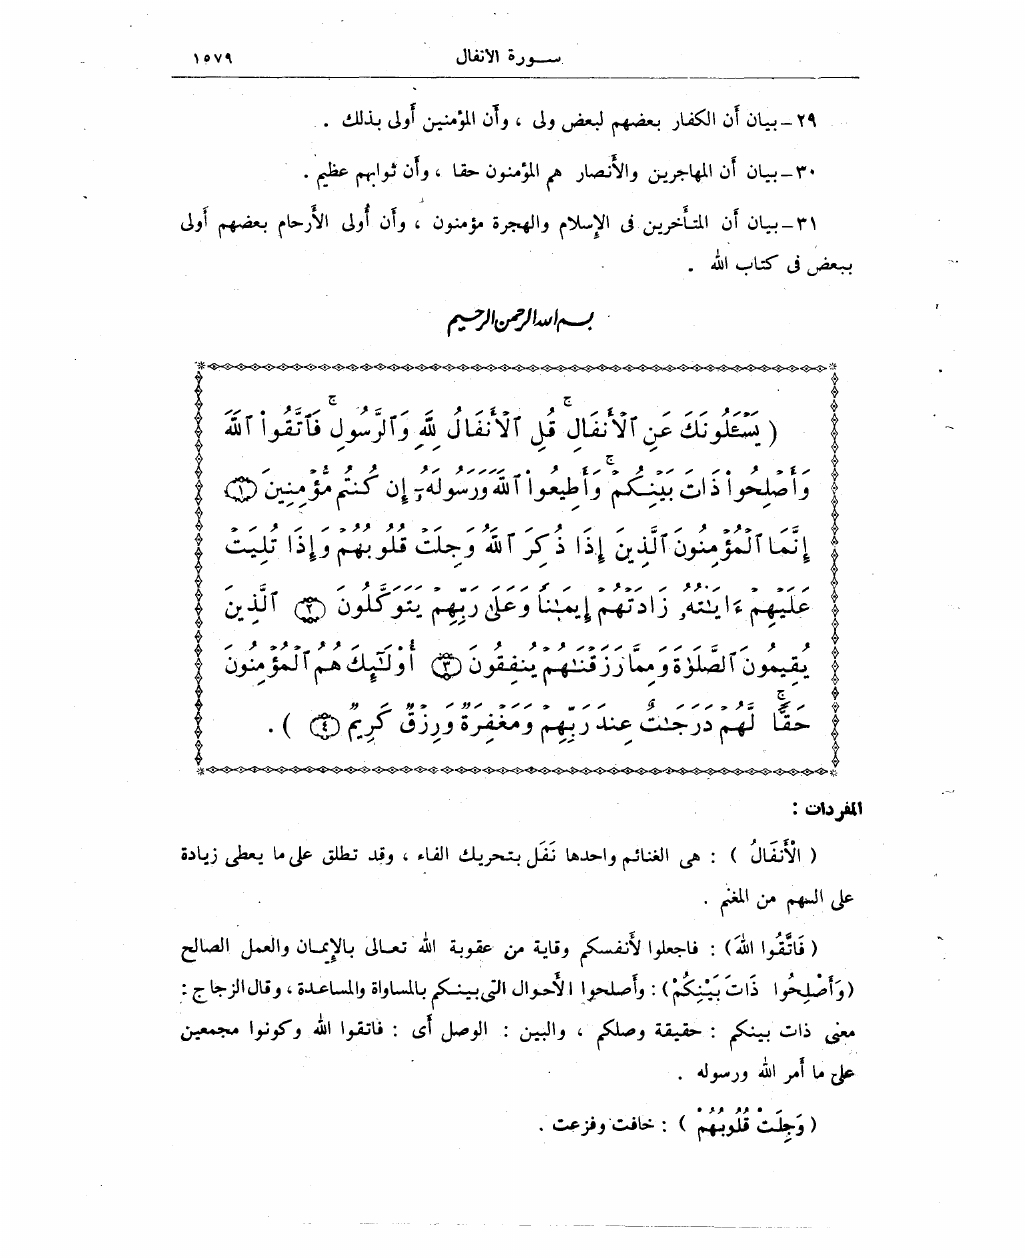 سورة الأنفال ١٥٧٩
٢٩ – بيان أن الكفار بعضهم لبعض ولى ، وأن المؤمنين أولى بذلك .
٣٠ – بيان أن المهاجرين والأنصار هم المؤمنون حقا ، وأن ثوابهم عظيم .
٣١ – بيان أن المتأخرين فى الإسلام والهجرة مؤمنون ، وأن أُولى الأرحام بعضهم أولى
ببعض فى كتاب الله .
بسم الله الرحمن الرحيم
( يَسْـَٔلُونَكَ عَنِ ٱلْأَنفَالِ ۖ قُلِ ٱلْأَنفَالُ لِلَّهِ وَٱلرَّسُولِ ۖ فَٱتَّقُوا۟ ٱللَّهَ
وَأَصْلِحُوا۟ ذَاتَ بَيْنِكُمْ ۖ وَأَطِيعُوا۟ ٱللَّهَ وَرَسُولَهُۥٓ إِن كُنتُم مُّؤْمِنِينَ ﴿١﴾
إِنَّمَا ٱلْمُؤْمِنُونَ ٱلَّذِينَ إِذَا ذُكِرَ ٱللَّهُ وَجِلَتْ قُلُوبُهُمْ وَإِذَا تُلِيَتْ
عَلَيْهِمْ ءَايَـٰتُهُۥ زَادَتْهُمْ إِيمَـٰنًا وَعَلَىٰ رَبِّهِمْ يَتَوَكَّلُونَ ﴿٢﴾ ٱلَّذِينَ
يُقِيمُونَ ٱلصَّلَوٰةَ وَمِمَّا رَزَقْنَـٰهُمْ يُنفِقُونَ ﴿٣﴾ أُو۟لَـٰٓئِكَ هُمُ ٱلْمُؤْمِنُونَ
حَقًّا ۚ لَّهُمْ دَرَجَـٰتٌ عِندَ رَبِّهِمْ وَمَغْفِرَةٌ وَرِزْقٌ كَرِيمٌ ﴿٤﴾ ) .
المفردات :
( الْأَنفَالُ ) : هى الغنائم واحدها نَفَل بتحريك الفاء ، وقد تطلق على ما يعطى زيادة
على السهم من المغنم .
( فَاتَّقُوا اللهَ ) : فاجعلوا لأنفسكم وقاية من عقوبة الله تعالى بالإيمان والعمل الصالح
( وَأَصْلِحُوا ذَاتَ بَيْنِكُمْ ) : وأصلحوا الأحوال التى بينكم بالمساواة والمساعدة ، وقال الزجاج :
معنى ذات بينكم : حقيقة وصلكم ، والبين : الوصل أى : فاتقوا الله وكونوا مجمعين
على ما أمر الله ورسوله .
( وَجِلَتْ قُلُوبُهُمْ ) : خافت وفزعت .